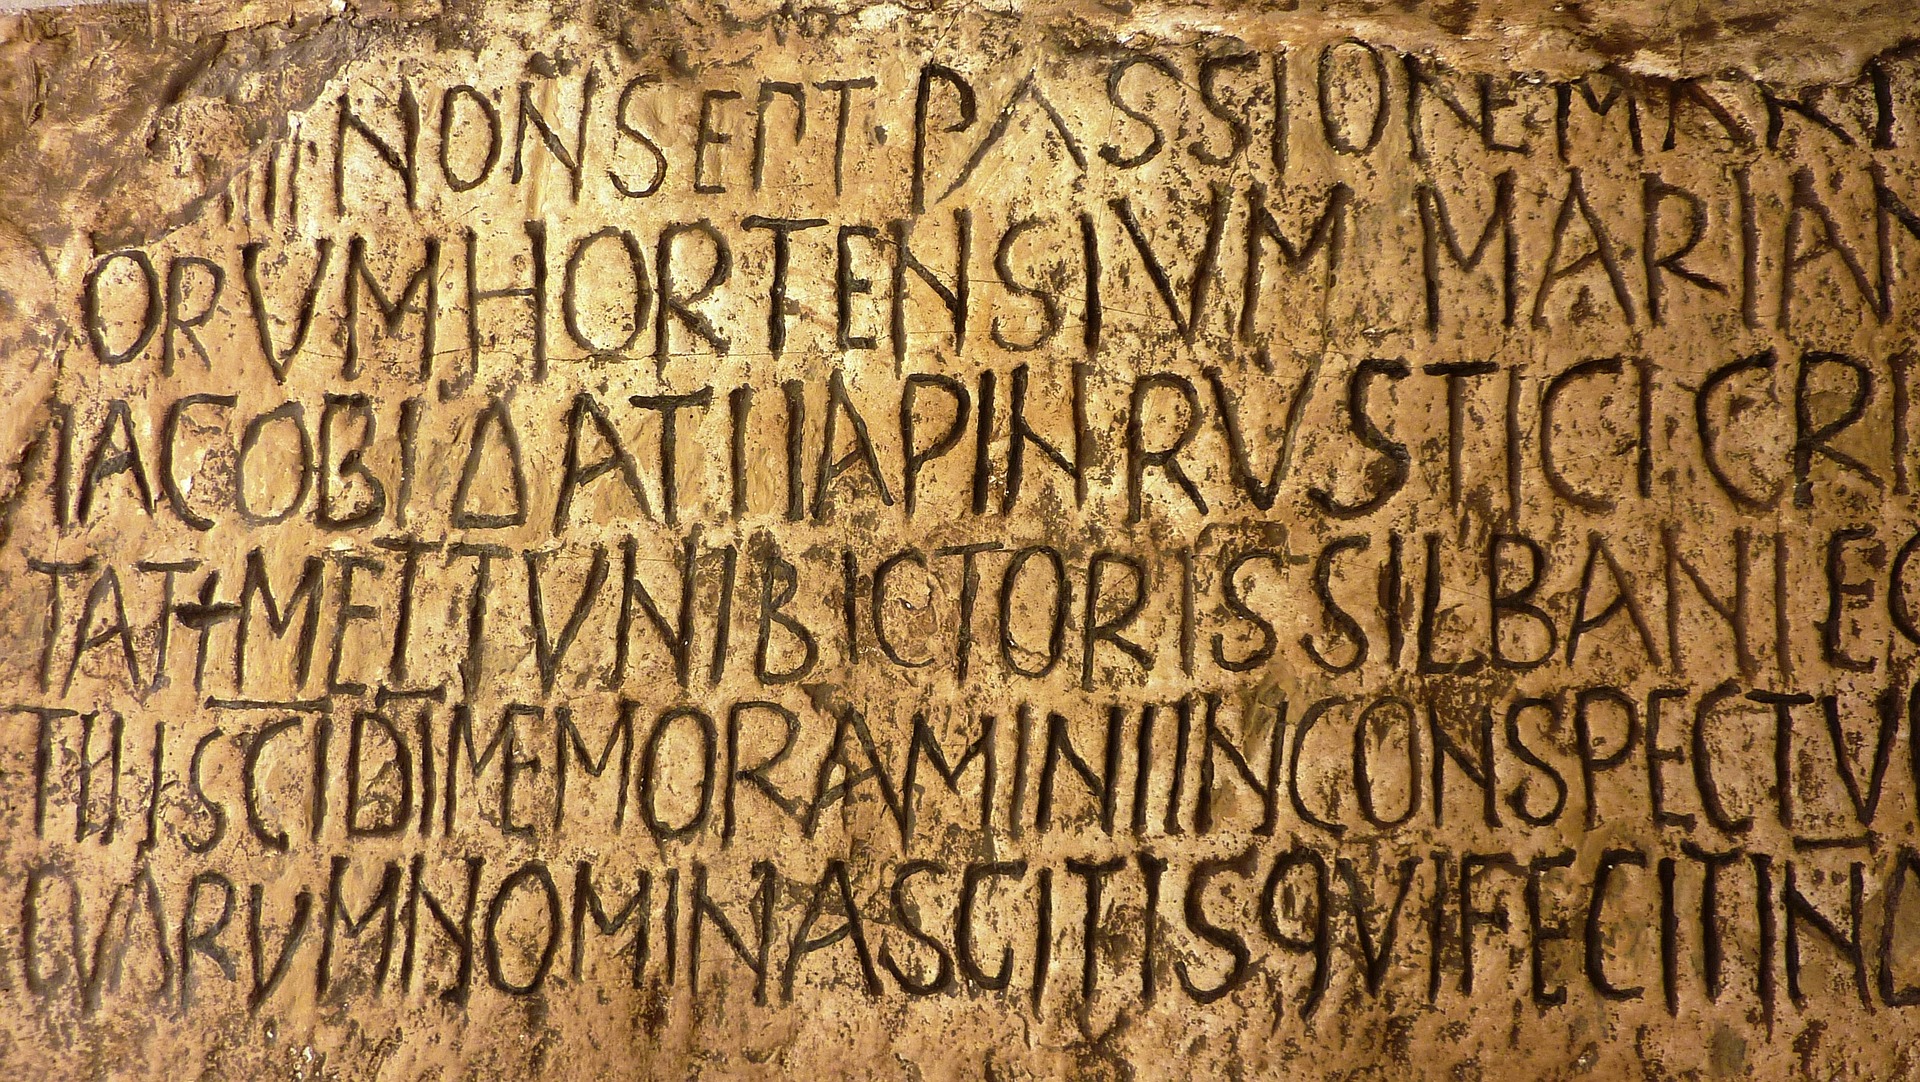 III NON SEPT · PASSIONE MARTVR
ORVM HORTENSIVM MARIAN
IACOBI DATI IAPIN RVSTICI CRI
TATI METTVNI BICTORIS SILBANI EG
TII SCI DI MEMORAMINI IN CONSPECTV
QVARVM NOMINA SCITIS QVI FECIT IND